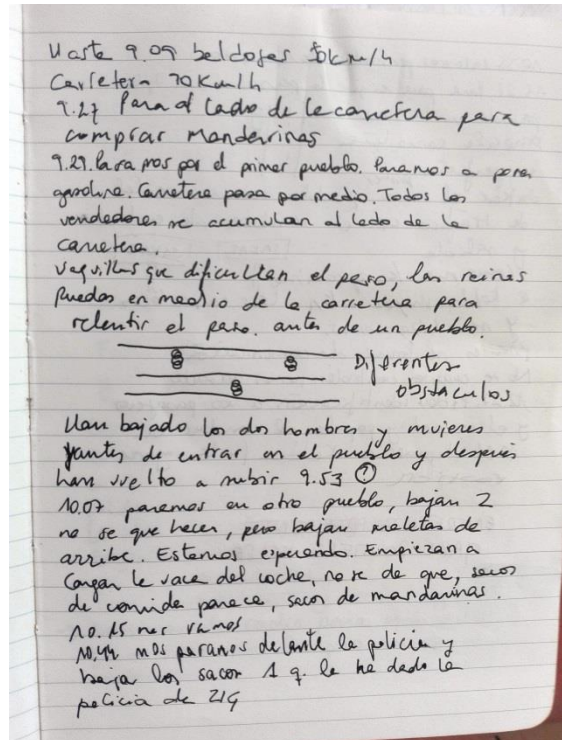 Hasta 9.09 baldosas 50km/h
Carretera 70 Km/h
9.27 Para al lado de la carretera para
comprar mandarinas
9.29. Paramos por el primer pueblo. Paramos a poner
gasolina. Carretera pasa por medio. Todos los
vendedores se acumulan al lado de la
carretera.
vaquillas que dificultan el paso, las reinas
Ruedas en medio de la carretera para
relentir el paso. antes de un pueblo.
Diferentes
obstáculos
Han bajado los dos hombres y mujeres
antes de entrar en el pueblo y después
han vuelto a subir 9.53 ?
10.07 paramos en otro pueblo, bajan 2
no se que hacen, pero bajan maletas de
arriba. Estamos esperando. Empiezan a
cargar la vaca del coche, no se de que, sacos
de comida parece, sacos de mandarinas.
10.15 nos vamos
10.44 nos paramos delante la policia y
baja los sacos 1 q. le ha dado la
policia de ZIG